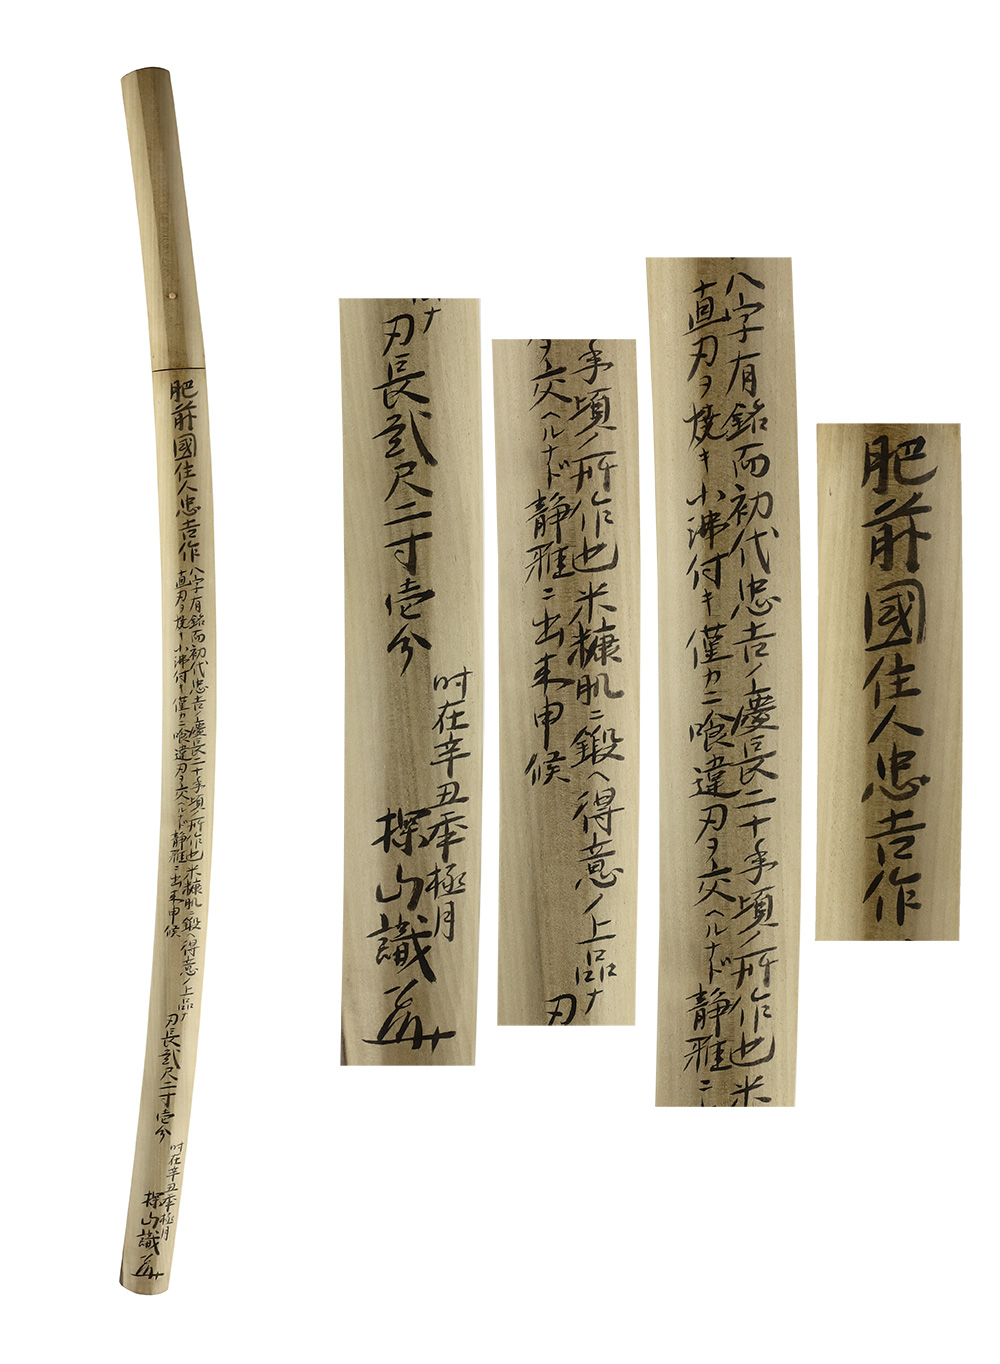 肥前國住人忠吉作
八字有銘而初代忠吉ノ慶長二十年頃ノ所作也米糠肌ニ鍛ヘ得意ノ上品ナ
直刃ヲ焼キ小沸付キ僅カニ喰違刃ヲ交ヘルナド静雅ニ出来申候
刃長弐尺二寸壱分
时在辛丑年極月
探山識
刃長弐尺二寸壱分
时在辛丑年極月
探山識
年頃ノ所作也米糠肌ニ鍛ヘ得意ノ上品ナ
ヲ交ヘルナド静雅ニ出来申候
刃
八字有銘而初代忠吉ノ慶長二十年頃ノ所作也米
直刃ヲ焼キ小沸付キ僅カニ喰違刃ヲ交ヘルナド静雅ニ
肥前國住人忠吉作